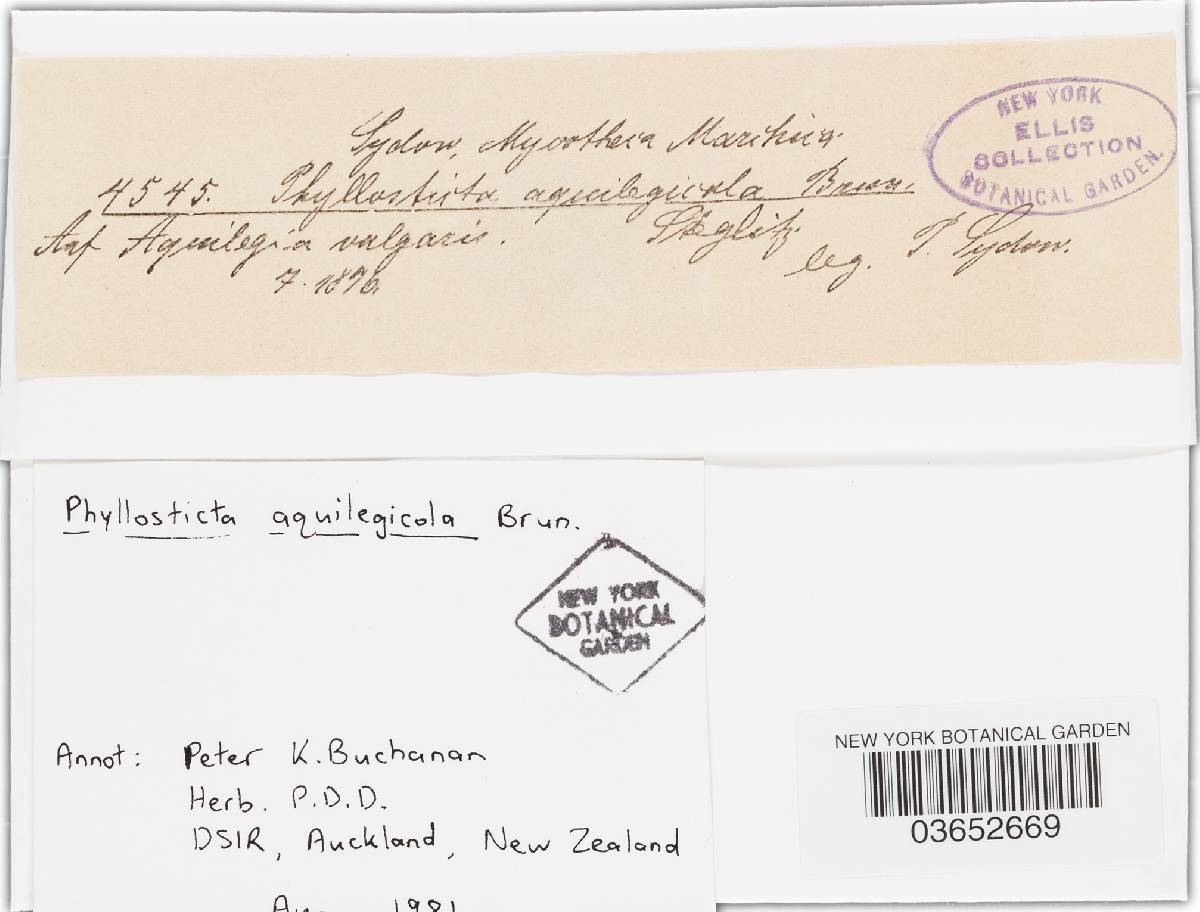 Sydow, Mycotheca Marchica
NEW YORK
ELLIS
COLLECTION
BOTANICAL GARDEN.
4545. Phyllosticta aquilegicola Brun.
Auf Aquilegia vulgaris. Steglitz
7. 1896 leg. P. Sydow.
Phyllosticta aquilegicola Brun.
NEW YORK
BOTANICAL
GARDEN
Annot: Peter K. Buchanan
Herb. P.D.D.
DSIR, Auckland, New Zealand
1981
NEW YORK BOTANICAL GARDEN
03652669